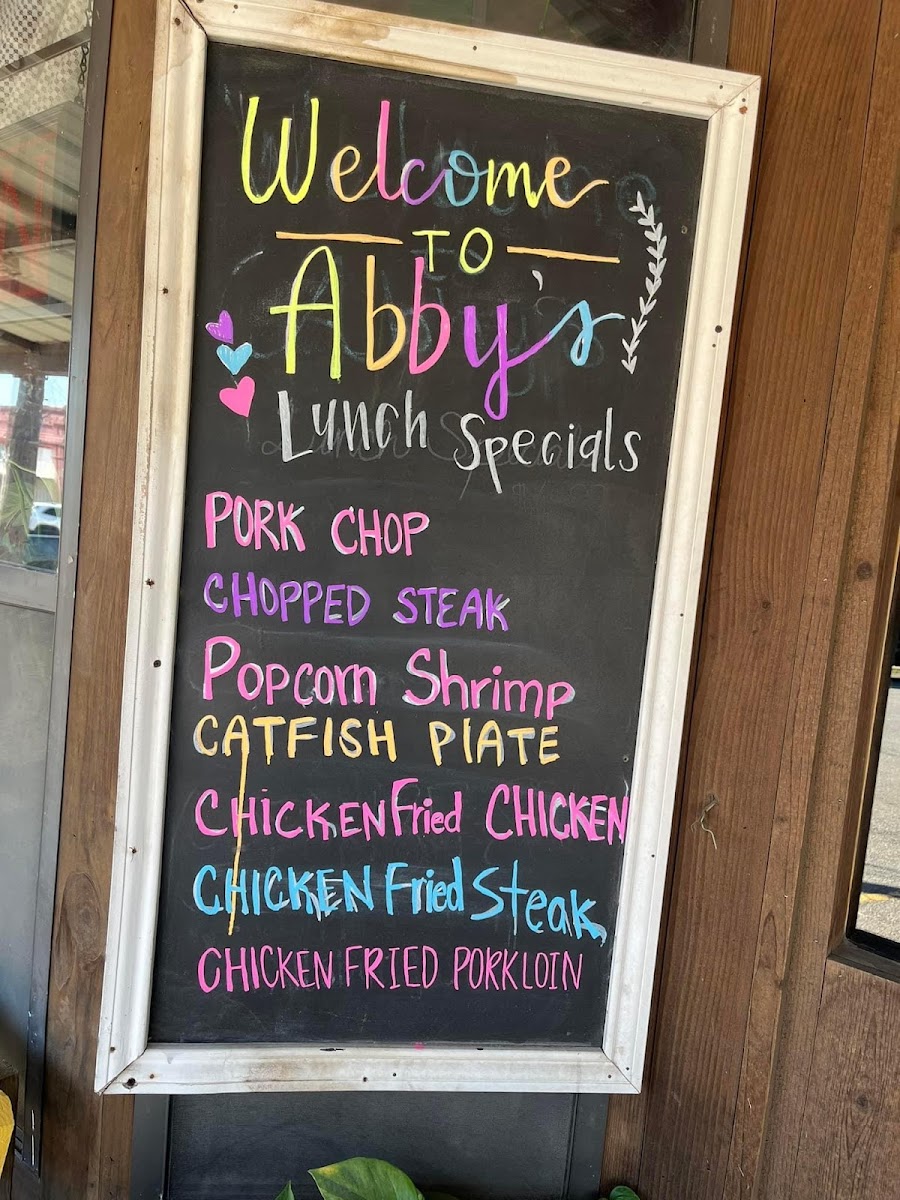 Welcome
TO
Abby's
Lunch Specials
PORK CHOP
CHOPPED STEAK
Popcorn Shrimp
CATFISH PlATE
CHiCKEN Fried CHICKEN
CHICKEN Fried Steak
CHICKEN FRIED PORKLOIN